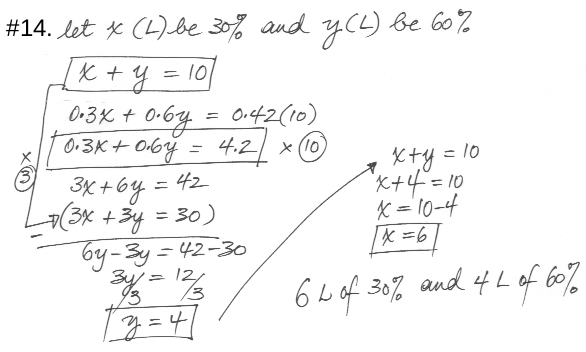 #14. let x (L) be 30% and y (L) be 60%
x + y = 10
0.3x + 0.6y = 0.42(10)
0.3x + 0.6y = 4.2 × 10
× 3
3x + 6y = 42
-(3x + 3y = 30)
6y - 3y = 42 - 30
3y/3 = 12/3
y = 4
x + y = 10
x + 4 = 10
x = 10 - 4
x = 6
6 L of 30% and 4 L of 60%